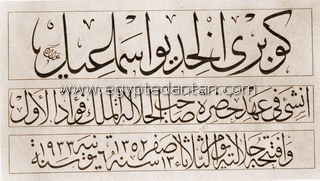 كوبرى الخديو اسماعيل
انشئ فى عهد حضرة صاحب الجلالة الملك فؤاد الأول
www.egyptedantan.com
وافتتحه جلالته يوم الثلاثاء ١٣ صفر سنة ١٣٥٢ ٦ يونيه سنة ١٩٣٣